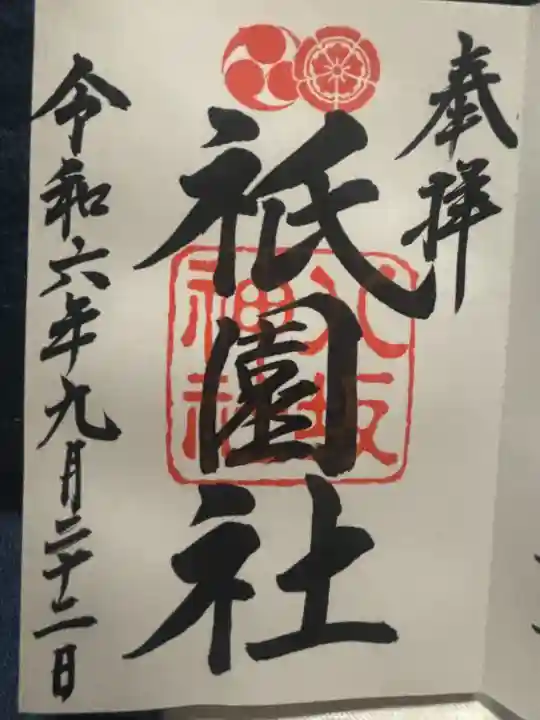 奉拝
祇園社
八坂
神社
令和六年九月二十二日